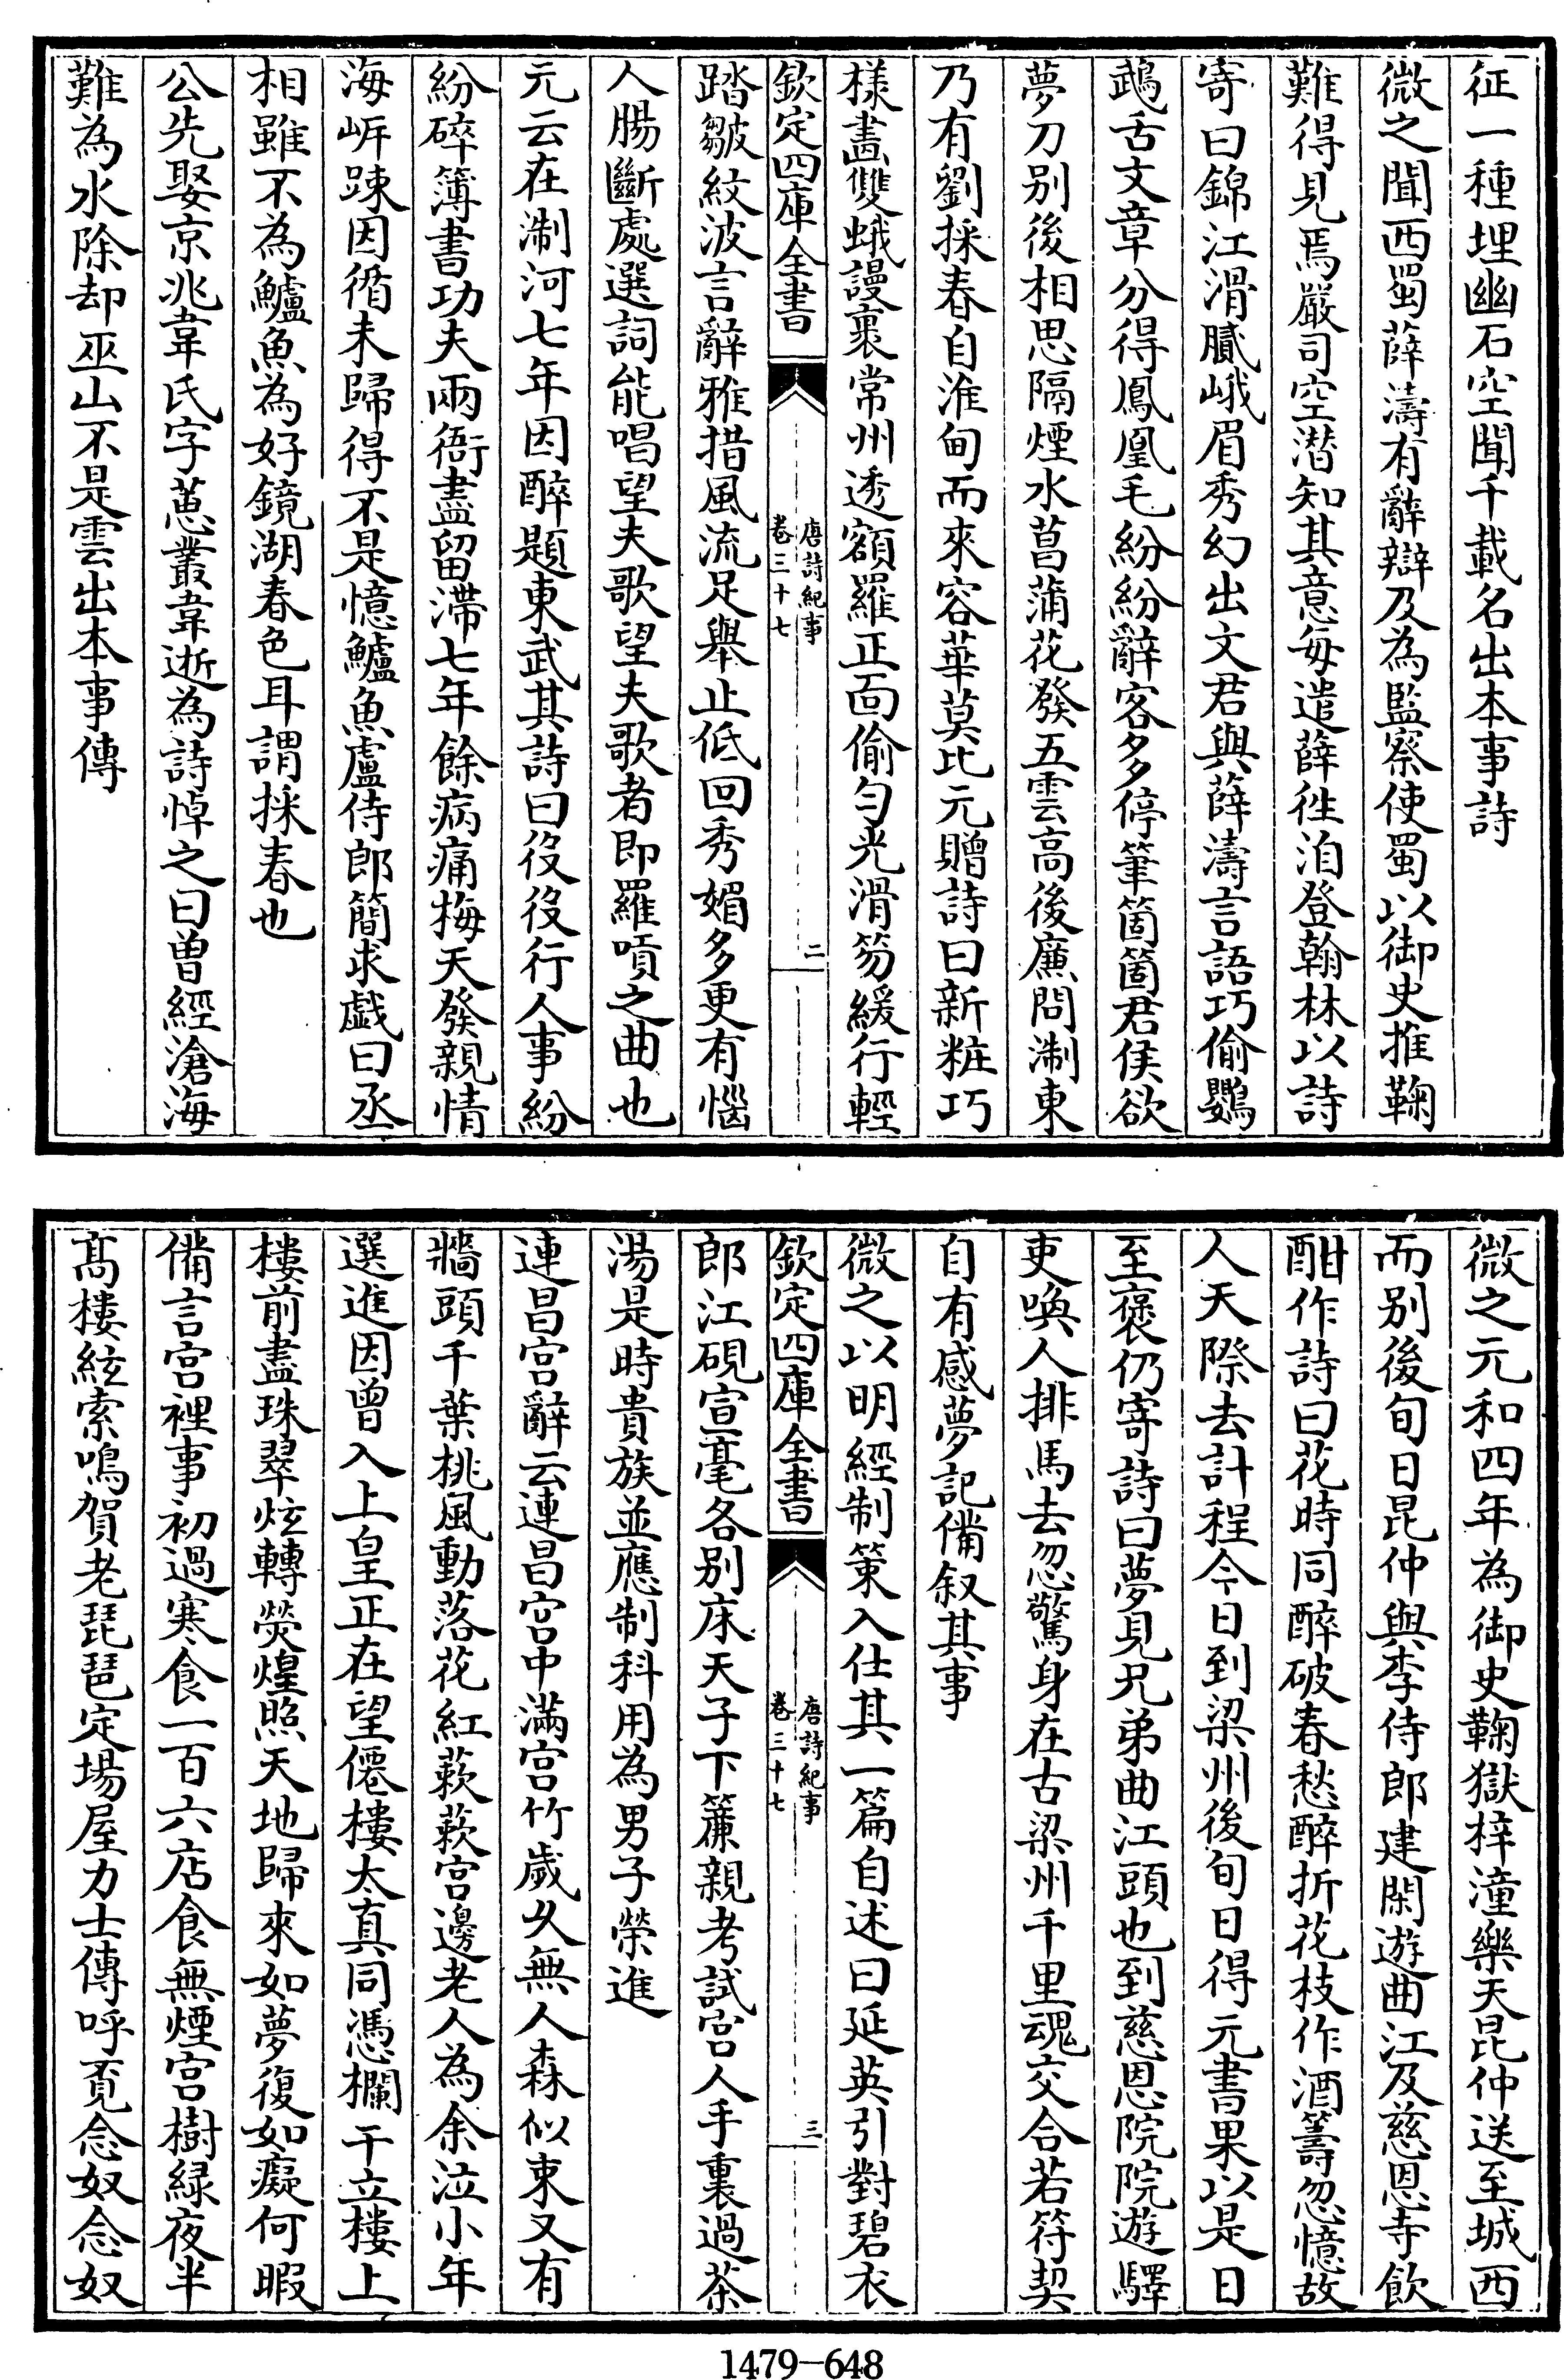 征一種埋幽石空聞千載名出本事詩
微之聞西蜀薛濤有辭辯及為監察使蜀以御史推鞠
難得見焉嚴司空潛知其意每遣薛徃洎登翰林以詩
寄曰錦江滑膩峨眉秀幻出文君與薛濤言語巧偷鸚
鵡舌文章分得鳳凰毛紛紛辭客多停筆箇箇君侯欲
夢刀别後相思隔煙水菖蒲花發五雲高後廉問淛東
乃有劉採春自淮甸而來容華莫比元贈詩曰新粧巧
様畫雙蛾謾裹常州透額羅正面偷勻光滑笏緩行輕
欽定四庫全書
唐詩紀事
卷三十七
二
踏皺紋波言辭雅措風流足舉止低回秀媚多更有惱
人腸斷處選詞能唱望夫歌望夫歌者即羅嗊之曲也
元云在淛河七年因醉題東武其詩曰役役行人事紛
紛碎簿書功夫兩衙盡留滯七年餘病痛梅天發親情
海岍踈因循未歸得不是憶鱸魚盧侍郎簡求戯曰丞
相雖不為鱸魚為好鏡湖春色耳謂採春也
公先娶京兆韋氏字蕙叢韋逝為詩悼之曰曽經滄海
難為水除却巫山不是雲出本事傳
微之元和四年為御史鞠獄梓潼樂天昆仲送至城西
而别後旬日昆仲與李侍郎建閑遊曲江及慈恩寺飲
酣作詩曰花時同醉破春愁醉折花枝作酒籌忽憶故
人天際去計程今日到梁州後旬日得元書果以是日
至褒仍寄詩曰夢見兄弟曲江頭也到慈恩院院遊驛
吏喚人排馬去忽驚身在古梁州千里魂交合若符契
自有感夢記備叙其事
微之以明經制策入仕其一篇自述曰延英引對碧衣
欽定四庫全書
唐詩紀事
卷三十七
三
郎江硯宣毫各别床天子下簾親考試宫人手裏過茶
湯是時貴族並應制科用為男子榮進
連昌宫辭云連昌宫中滿宫竹歲乆無人森似束又有
牆頭千葉桃風動落花紅蔌蔌宫邊老人為余泣小年
選進因曾入上皇正在望僊樓太真同憑欄干立樓上
樓前盡珠翠炫轉熒煌照天地歸來如夢復如癡何暇
備言宫裡事初過寒食一百六店食無煙宫樹緑夜半
髙樓絃索鳴賀老琵琶定塲屋力士傳呼覔念奴念奴
1479—648